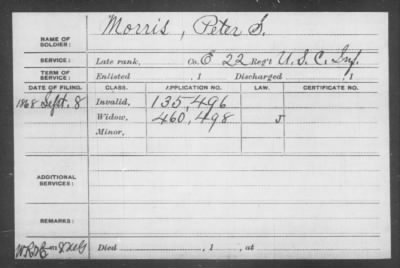 NAME OF SOLDIER: Morris, Peter S.
SERVICE: Late rank, Co. E 22 Reg't U.S.C. Inf.
TERM OF SERVICE: Enlisted , 1 Discharged , 1
DATE OF FILING. CLASS. APPLICATION NO. LAW. CERTIFICATE NO.
1868 Sept. 8 Invalid, 135,496
Widow, 460,498 J
Minor,
ADDITIONAL SERVICES:
REMARKS:
Died , 1 , at